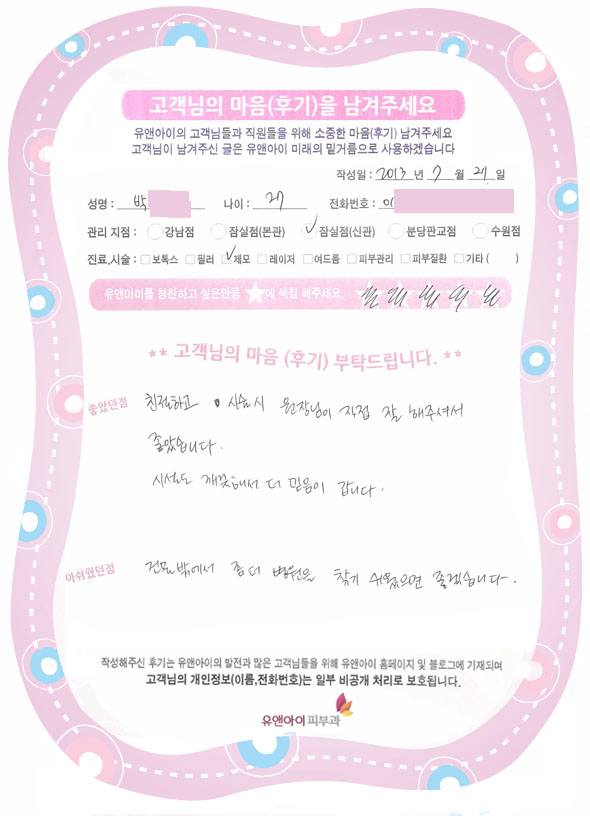 고객님의 마음(후기)을 남겨주세요
유앤아이의 고객님들과 직원들을 위해 소중한 마음(후기) 남겨주세요
고객님이 남겨주신 글은 유앤아이 미래의 밑거름으로 사용하겠습니다
작성일 : 2013 년 7 월 27 일
성명 : 박 나이 : 27 전화번호 : 01
관리 지점 : 강남점 잠실점(본관) 잠실점(신관) 분당판교점 수원점
진료,시술 : 보톡스 필러 제모 레이저 여드름 피부관리 피부질환 기타 ( )
유앤아이를 칭찬하고 싶은만큼 ★에 색칠 해주세요.
** 고객님의 마음 (후기) 부탁드립니다. **
좋았던점 친절하고 시술시 원장님이 직접 잘 해주셔서
좋았습니다.
시설도 깨끗해서 더 믿음이 갑니다.
아쉬웠던점 건물밖에서 좀더 병원을 찾기 쉬웠으면 좋겠습니다.
작성해주신 후기는 유앤아이의 발전과 많은 고객님들을 위해 유앤아이 홈페이지 및 블로그에 기재되며
고객님의 개인정보(이름,전화번호)는 일부 비공개 처리로 보호됩니다.
유앤아이피부과